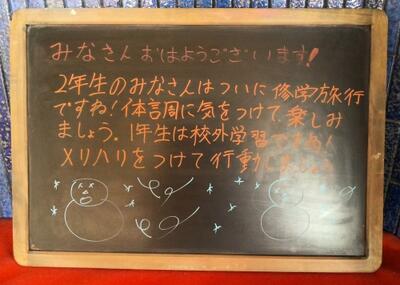 みなさん おはようございます!
2年生のみなさんはついに修学旅行
ですね!体調に気をつけて楽しみ
ましょう。1年生は校外学習ですね!
メリハリをつけて行動しましょう